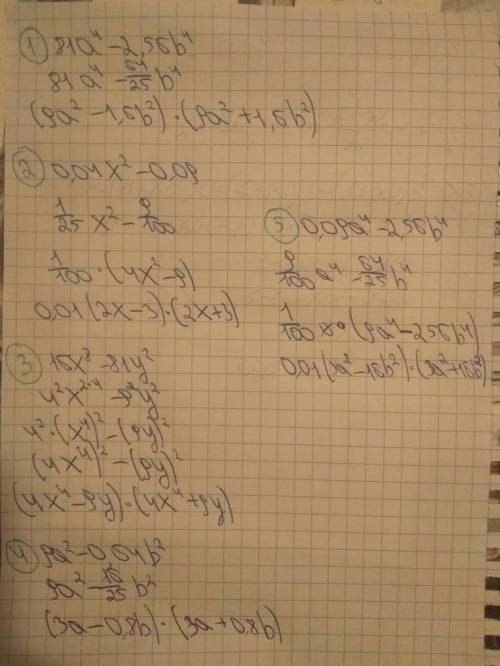 ① 81a⁴ - 2,56b⁴
81a⁴ - 64/25 b⁴
(9a² - 1,6b²)·(9a² + 1,6b²)
② 0,04x² - 0,09
1/25 x² - 9/100
1/100·(4x² - 9)
0,01(2x - 3)·(2x + 3)
③ 16x⁸ - 81y²
4²x²·⁴ - 9²y²
4²·(x⁴)² - (9y)²
(4x⁴)² - (9y)²
(4x⁴ - 9y)·(4x⁴ + 9y)
④ 9a² - 0,64b²
9a² - 16/25 b²
(3a - 0,8b)·(3a + 0,8b)
⑤ 0,09a⁴ - 2,56b⁴
9/100 a⁴ - 64/25 b⁴
1/100 · (9a⁴ - 256b⁴)
0,01(3a² - 16b²)·(3a² + 16b²)